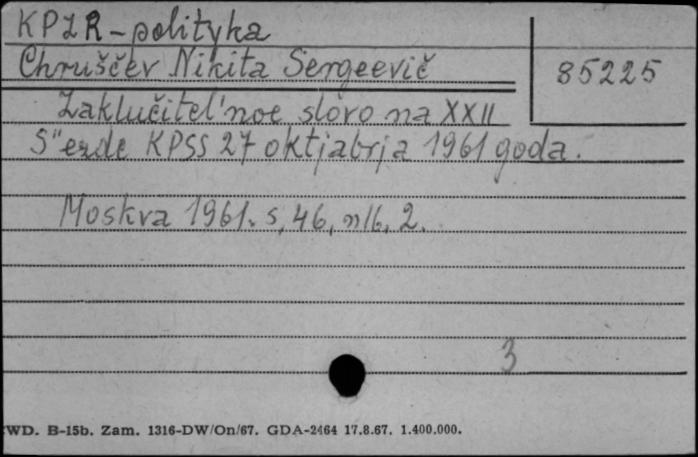 KPZR - polityka
Chruščev Nikita Sergeevič
85225
Zaklučitel'noe slovo na XXII
S"ezde KPSS 27 oktjabrja 1961 goda.
Moskva 1961. s. 46, nlb. 2.
3
WD. B-15b. Zam. 1316-DW/On/67. GDA-2464 17.8.67. 1.400.000.